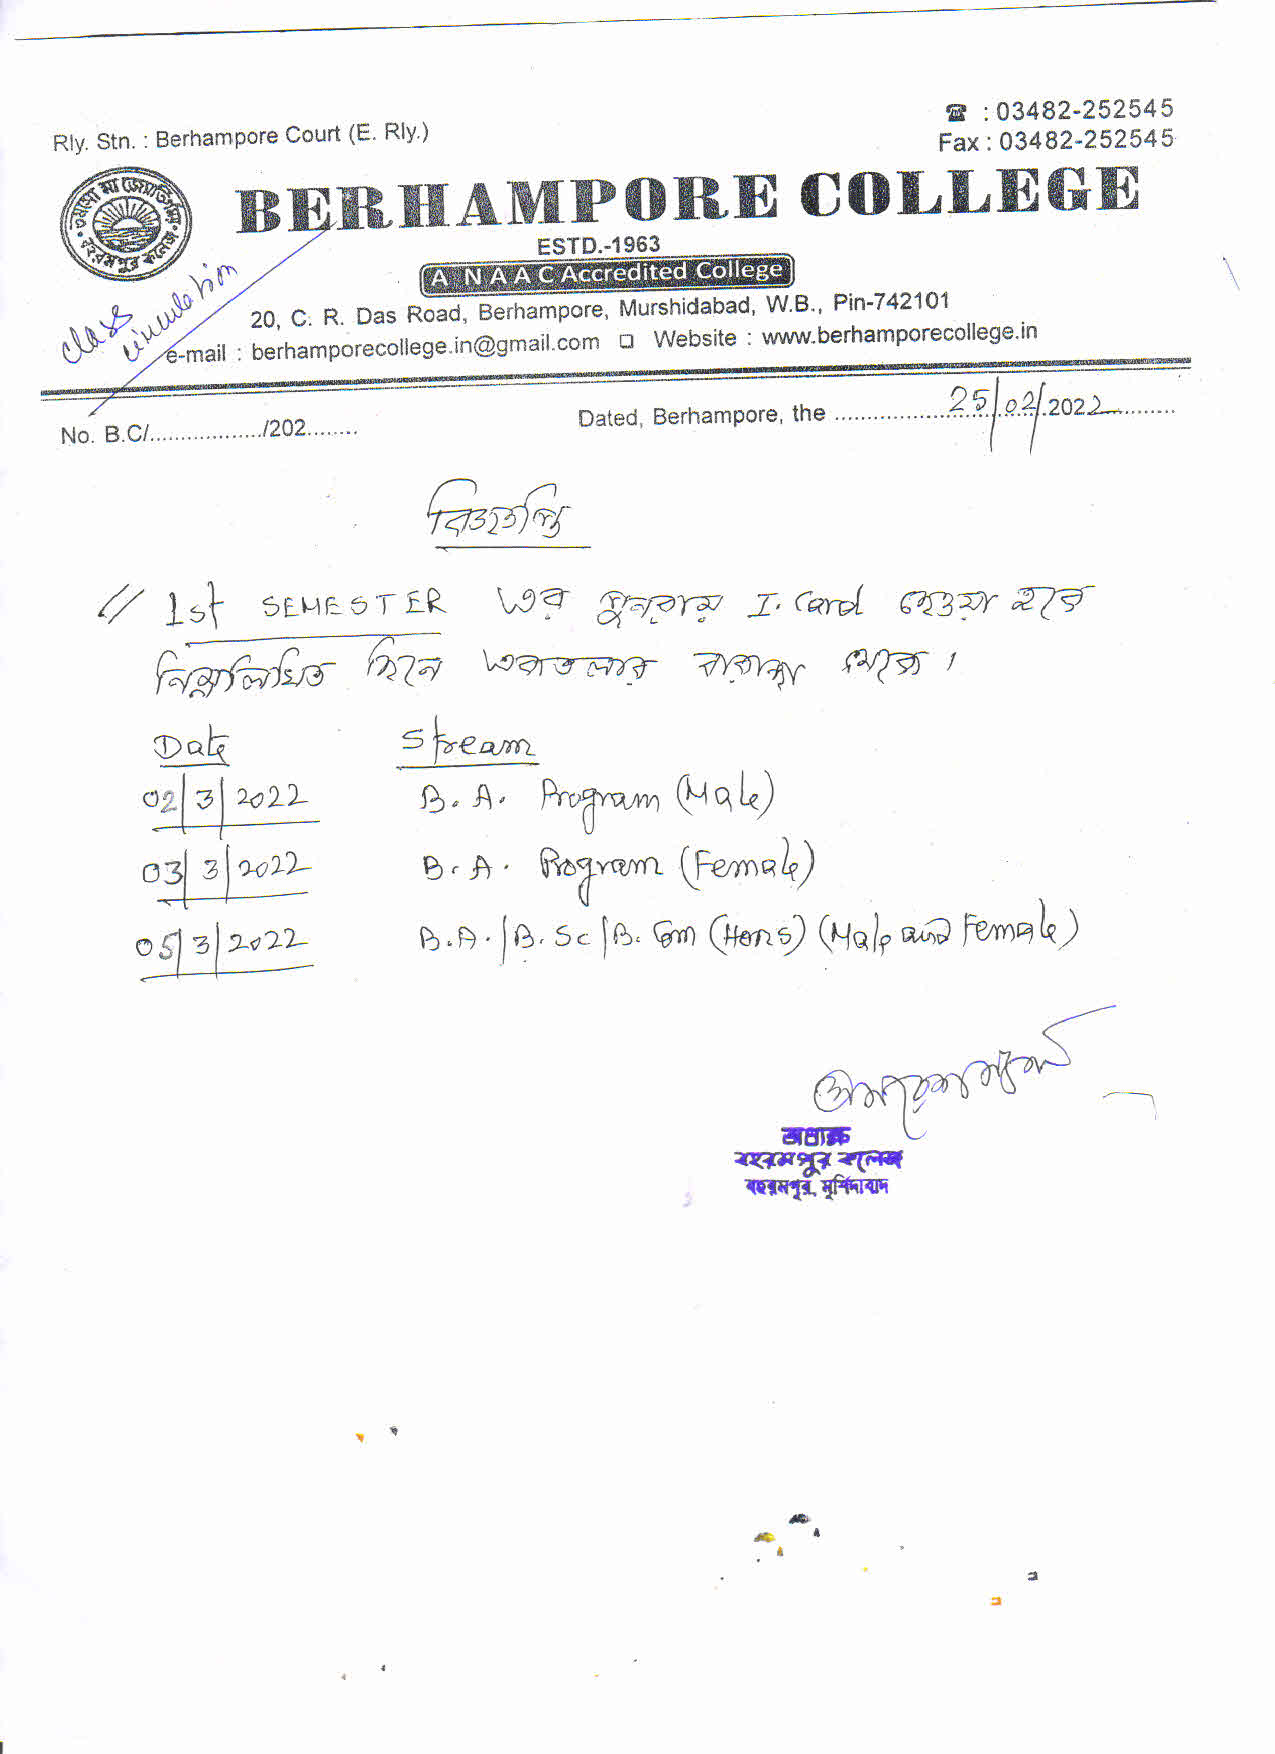 Rly. Stn. : Berhampore Court (E. Rly.)
☎ : 03482-252545
Fax : 03482-252545
তমসো মা জ্যোতির্গময়
বহরমপুর কলেজ
BERHAMPORE COLLEGE
ESTD.-1963
A NAAC Accredited College
class circulation
20, C. R. Das Road, Berhampore, Murshidabad, W.B., Pin-742101
e-mail : berhamporecollege.in@gmail.com ❑ Website : www.berhamporecollege.in
No. B.C/................../202........
Dated, Berhampore, the ....................25/02/2022............
বিজ্ঞপ্তি
// 1st SEMESTER এর পুনরায় I. Card দেওয়া হবে
নিম্নলিখিত দিনে একতলার বারান্দা থেকে।
Date Stream
02/3/2022 B.A. Program (Male)
03/3/2022 B.A. Program (Female)
05/3/2022 B.A./B.Sc/B.Com (Hons) (Male and Female)
অধ্যক্ষ
বহরমপুর কলেজ
বহরমপুর, মুর্শিদাবাদ